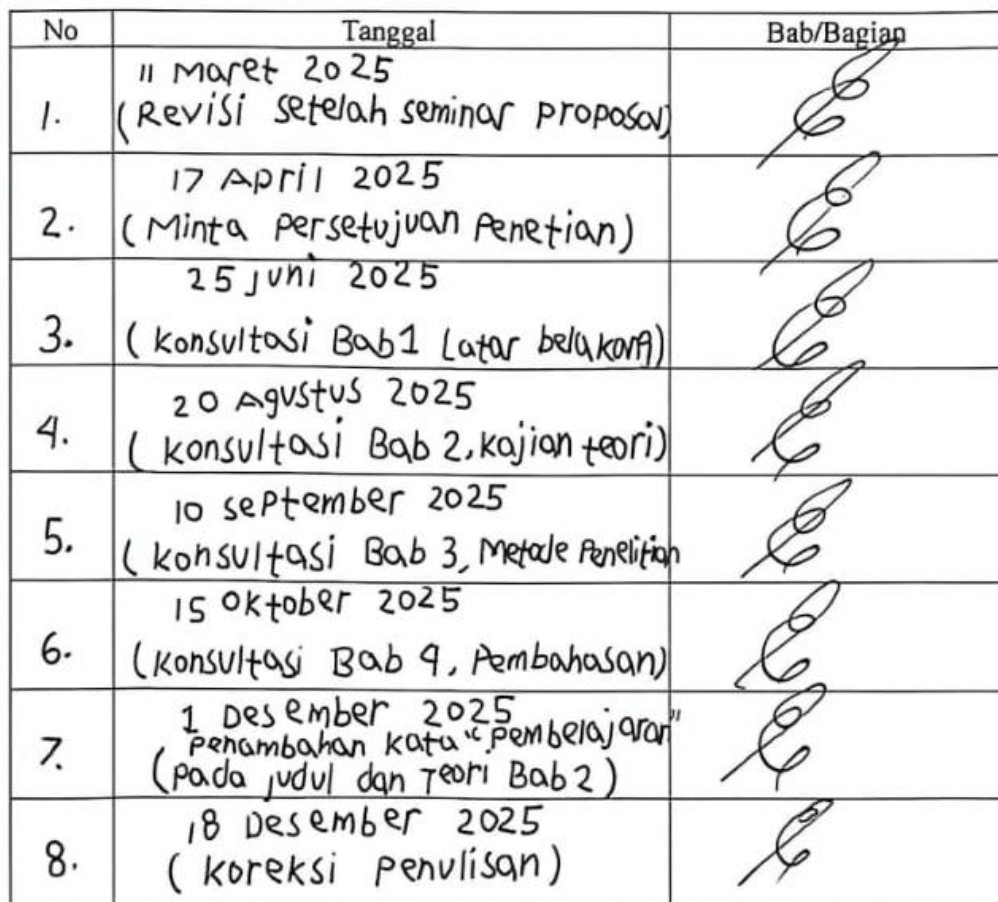 No Tanggal Bab/Bagian
11 Maret 2025
1. (Revisi setelah seminar proposal)
17 April 2025
2. (Minta persetujuan Penetian)
25 juni 2025
3. (konsultasi Bab1 Latar belakang)
20 Agustus 2025
4. (konsultasi Bab 2, kajian teori)
10 september 2025
5. (konsultasi Bab 3, Metode Penelitian
15 Oktober 2025
6. (konsultasi Bab 4, Pembahasan)
1 Desember 2025
penambahan kata "pembelajaran"
7. (pada judul dan Teori Bab 2)
18 Desember 2025
8. (koreksi penulisan)